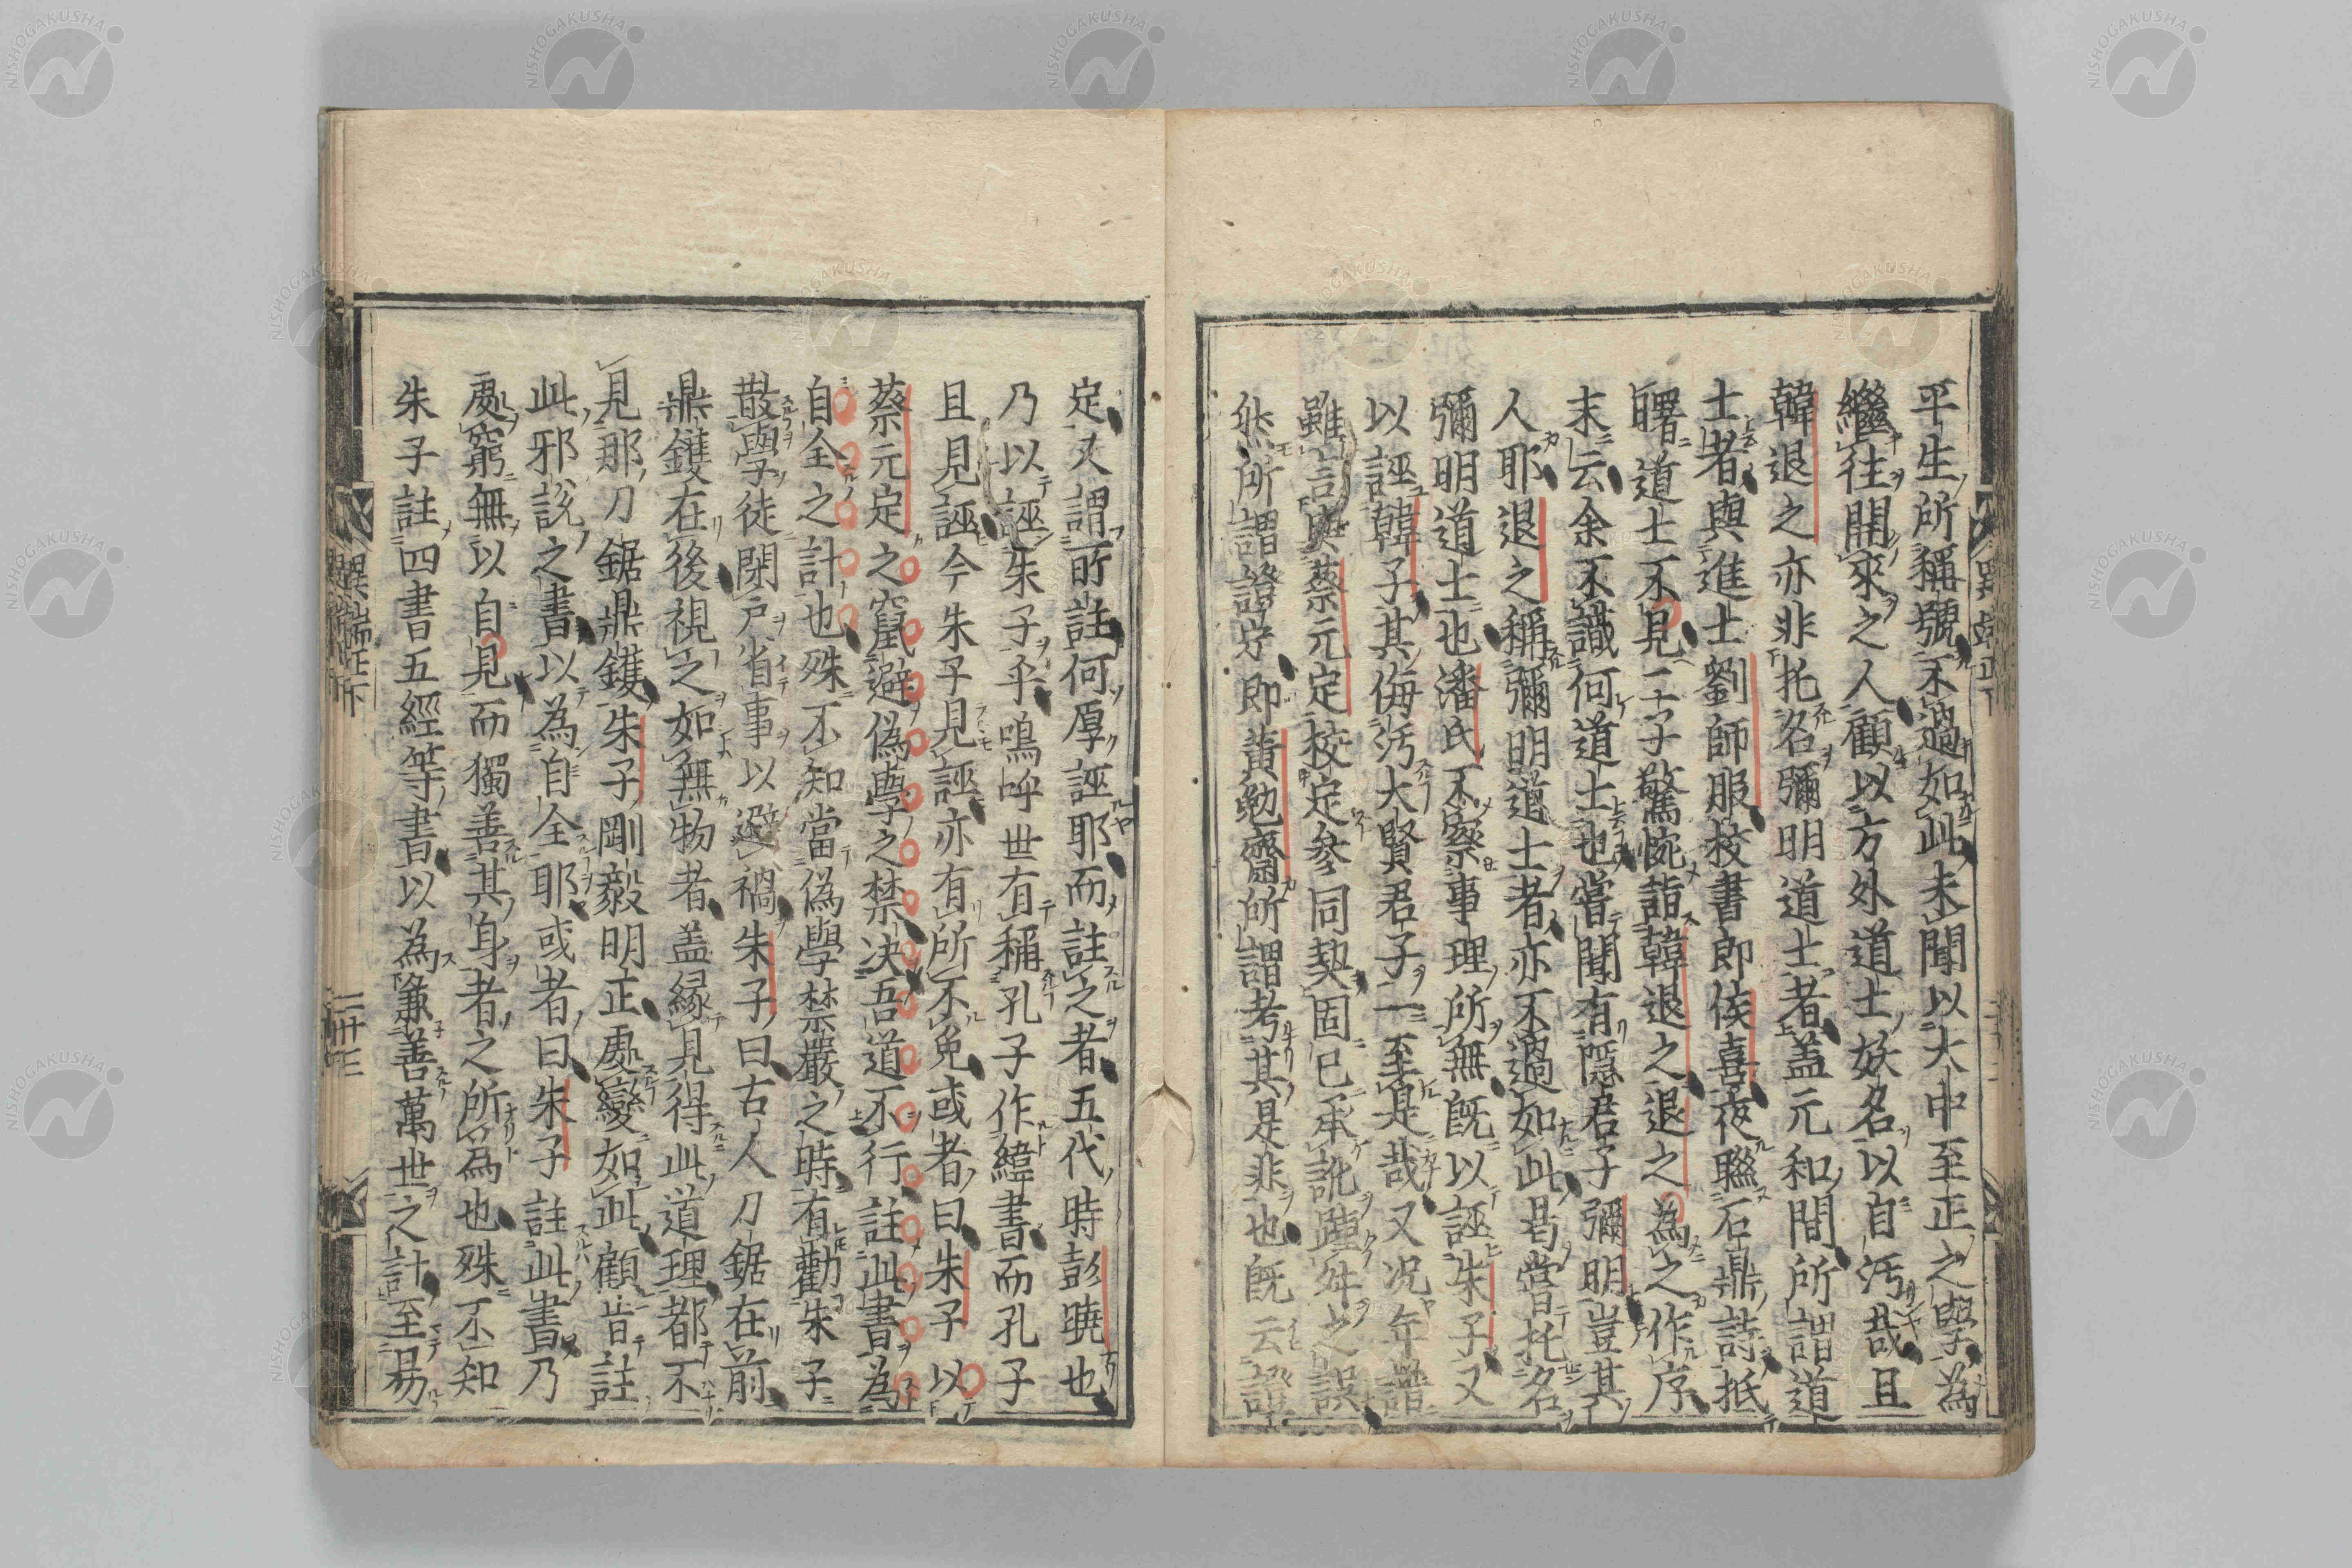 平生所稱號不過如此未聞以大中至正之學為
繼往開來之人顧以方外道士妖名以自汚哉且
韓退之亦非托名彌明道士者盖元和間所謂道
士者與進士劉師服校書郎侯喜夜聯石鼎詩抵
曙道士不見二子驚惋詣韓退之退之為之作序
末云余不識何道士也嘗聞有隱君子彌明豈其
人耶退之稱彌明道士者亦不過如此曷嘗托名
彌明道士也潘氏不察事理所無既以誣朱子又
以誣韓子其侮汚大賢君子一至是哉又况年譜
雖言與蔡元定校定參同契固已承訛踵舛之誤
然所謂證字即黄勉齋所謂考其是非也既云證
定又謂所註何厚誣耶而註之者五代時彭曉也
乃以誣朱子乎嗚呼世有稱孔子作緯書而孔子
且見誣今朱子見誣亦有所不免或者曰朱子以
蔡元定之竄避偽學之禁决吾道不行註此書為
自全之計也殊不知當偽學禁嚴之時有勸朱子
散學徒閉戸省事以避禍朱子曰古人刀鋸在前
鼎鑊在後視之如無物者盖縁見得此道理都不
見那刀鋸鼎鑊朱子剛毅明正處變如此顧昔註
此邪説之書以為自全耶或者曰朱子註此書乃
處窮無以自見而獨善其身者之所為也殊不知
朱子註四書五經等書以為兼善萬世之計至易
異端正下
二卅三
NISHOGAKUSHA